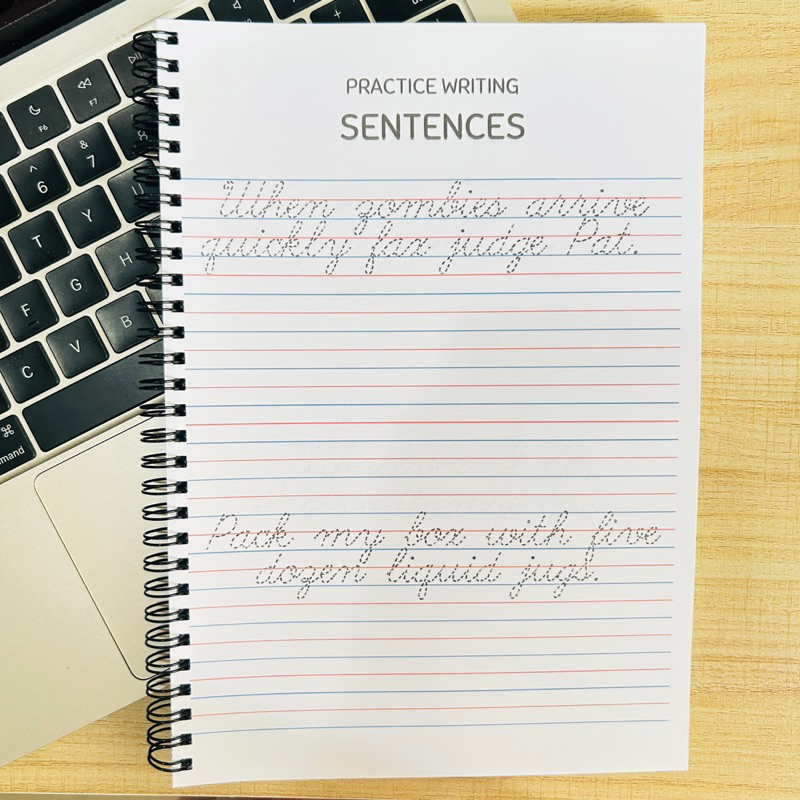 PRACTICE WRITING
SENTENCES
When zombies arrive
quickly fax judge Pat.
Pack my box with five
dozen liquid jugs.
F6
F7
^
6
&
7
T
Y
U
F
G
H
C
V
B
⌘
mand